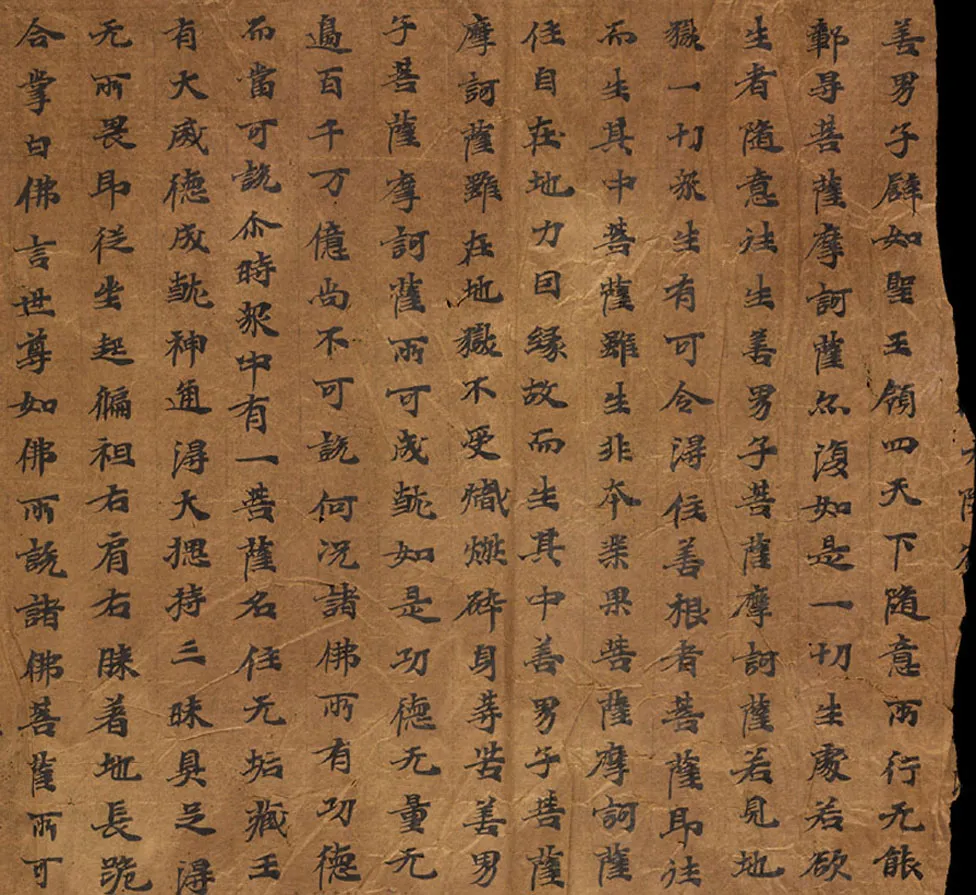 善男子辟如聖王領四天下隨意所行无能
鄣导菩薩摩訶薩亦復如是一切生處若欲
生者隨意往生善男子菩薩摩訶薩若見地
獄一切衆生有可令得住善根者菩薩即往
而生其中菩薩雖生非本業果菩薩摩訶薩
住自在地力因緣故而生其中善男子菩薩
摩訶薩雖在地獄不受熾燃碎身等苦善男
子菩薩摩訶薩所可成就如是功德无量无
邊百千万億尚不可說何況諸佛所有功德
而當可說尒時衆中有一菩薩名住无垢藏王
有大威德成就神通得大揔持三昧具足得
无所畏即從坐起偏袒右肩右膝著地長跪
合掌白佛言世尊如佛所說諸佛菩薩所可